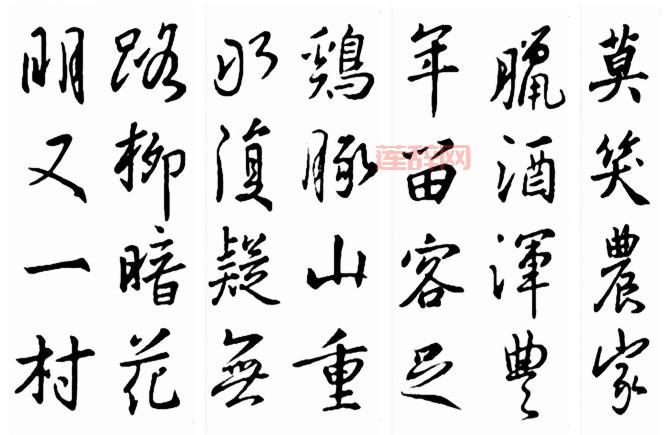 莫笑農家
臘酒渾豐
年留客足
鷄豚山重
水復疑無
路柳暗花
明又一村
莲辞网